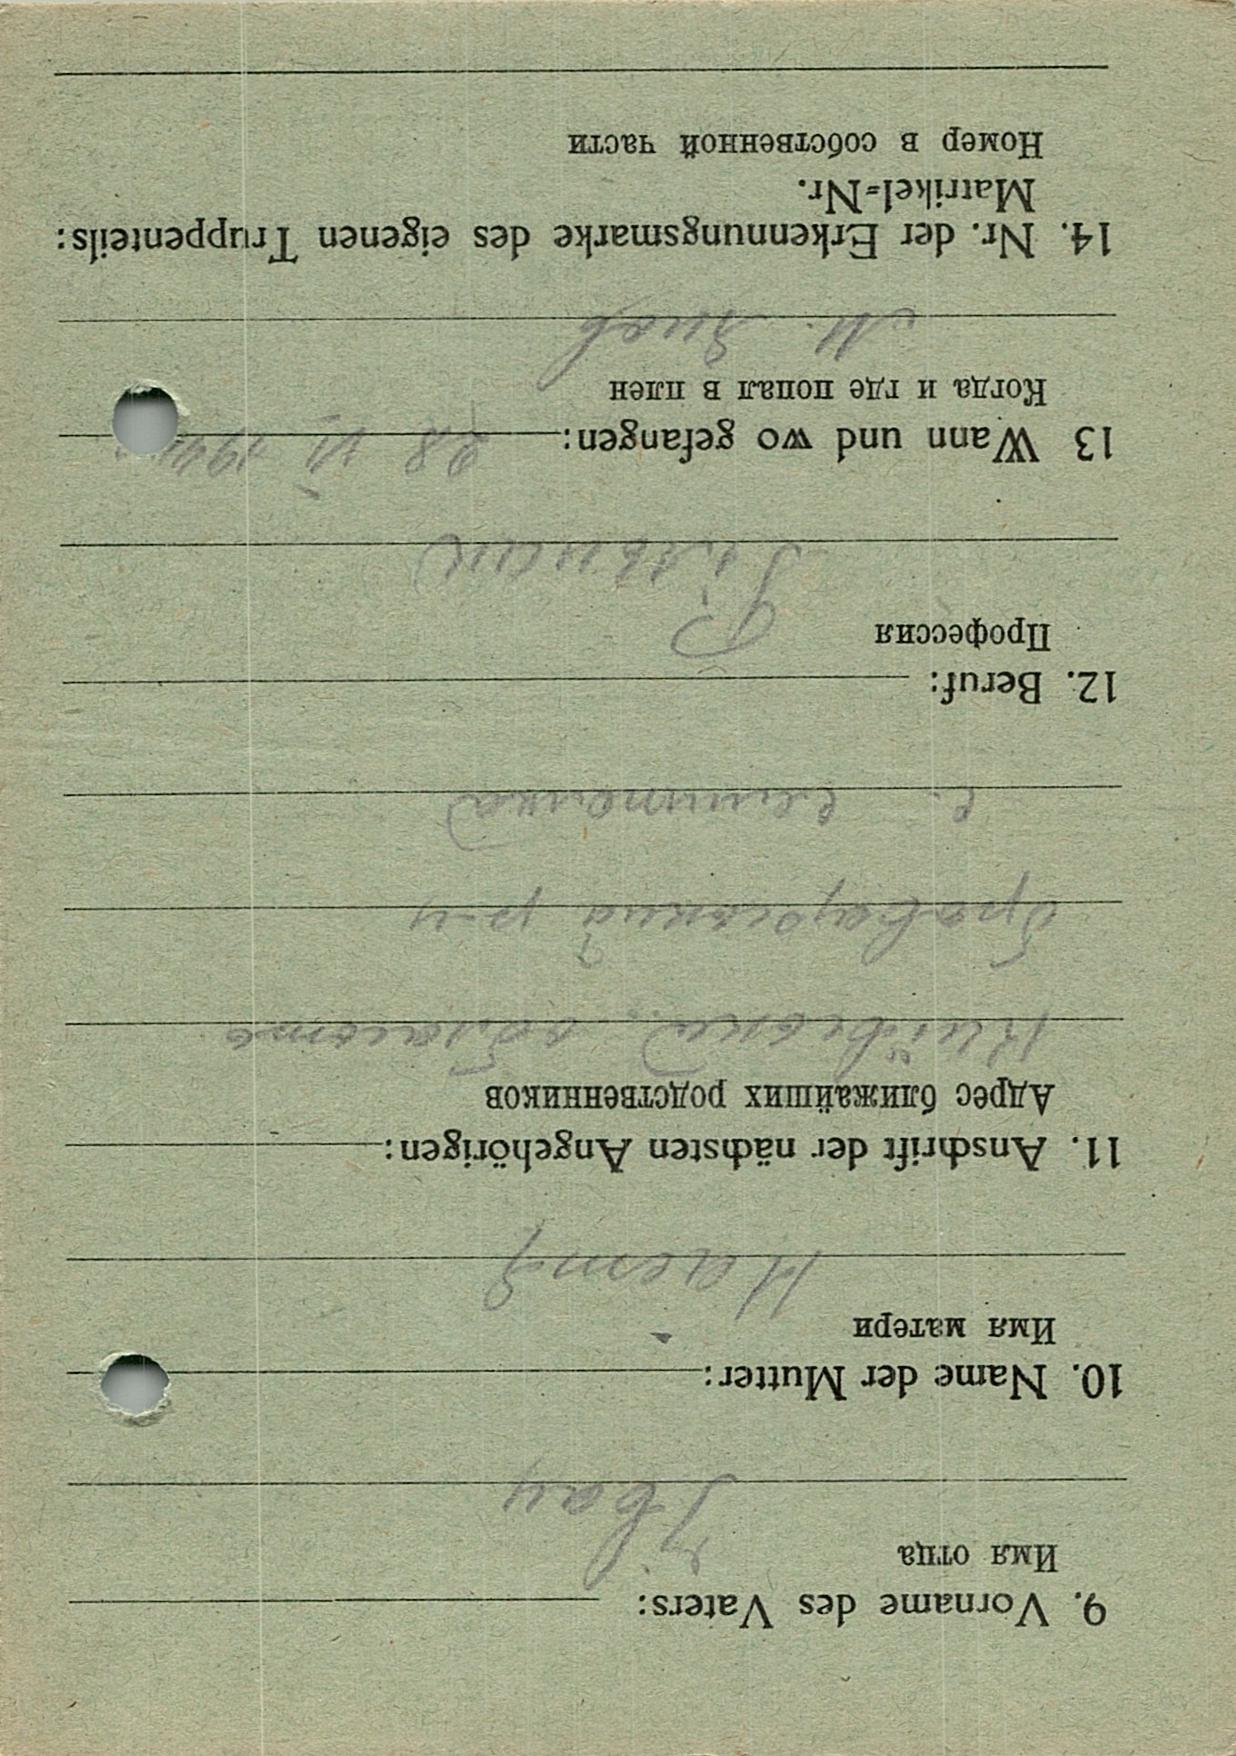 9. Vorname des Vaters:
Имя отца
Іван
10. Name der Mutter:
Имя матери
Настя
11. Anschrift der nächsten Angehörigen:
Адрес ближайших родственников
Київська область
Броварський р-н
с. Семиполка
12. Beruf:
Профессия
13 Wann und wo gefangen: 28 VI 194
Когда и где попал в плен
М.
14. Nr. der Erkennungsmarke des eigenen Truppenteils:
Matrikel-Nr.
Номер в собственной части